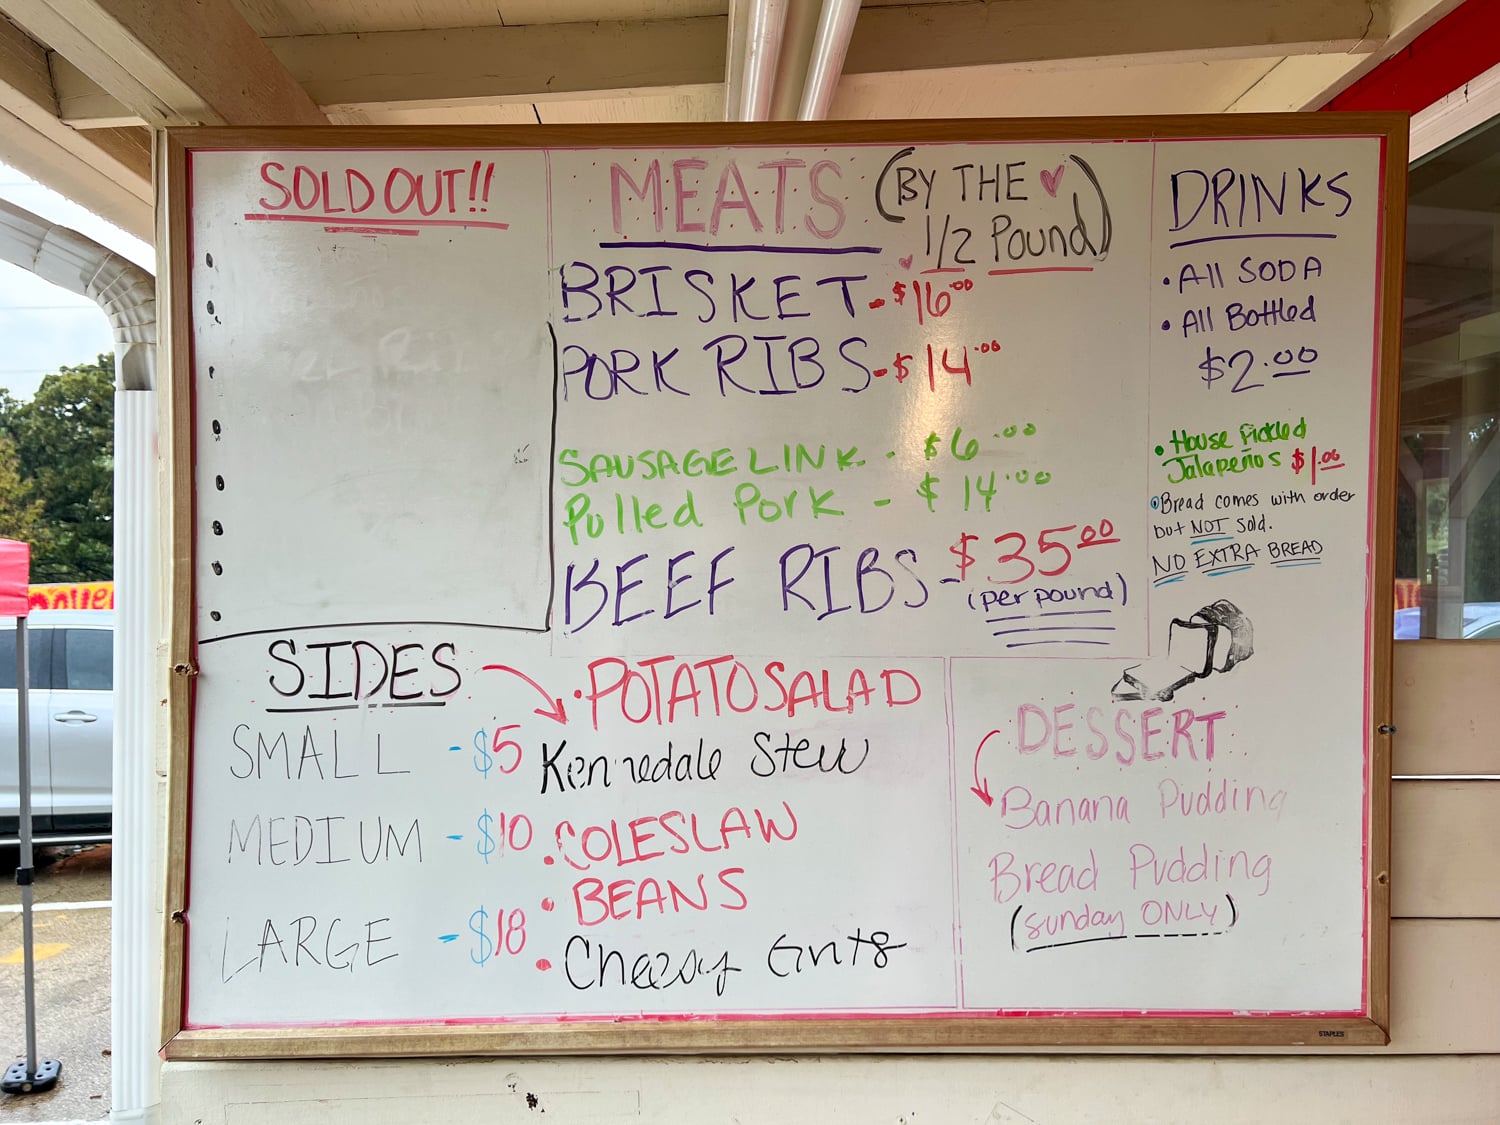 SOLD OUT!!
MEATS (BY THE
1/2 Pound)
BRISKET - $16.00
PORK RIBS - $14.00
SAUSAGE LINK - $6.00
Pulled Pork - $14.00
BEEF RIBS - $35.00
(per pound)
DRINKS
• All SODA
• All Bottled
$2.00
• House Pickled
Jalapeños $1.00
• Bread comes with order
but NOT Sold.
NO EXTRA BREAD
SIDES
SMALL - $5
MEDIUM - $10
LARGE - $18
• POTATO SALAD
Kennedale Stew
• COLESLAW
• BEANS
• Cheesy Grits
DESSERT
Banana Pudding
Bread Pudding
(Sunday ONLY)
STAPLES